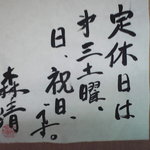 定休日は
オ三土曜、
日、祝日、
です。
森晴